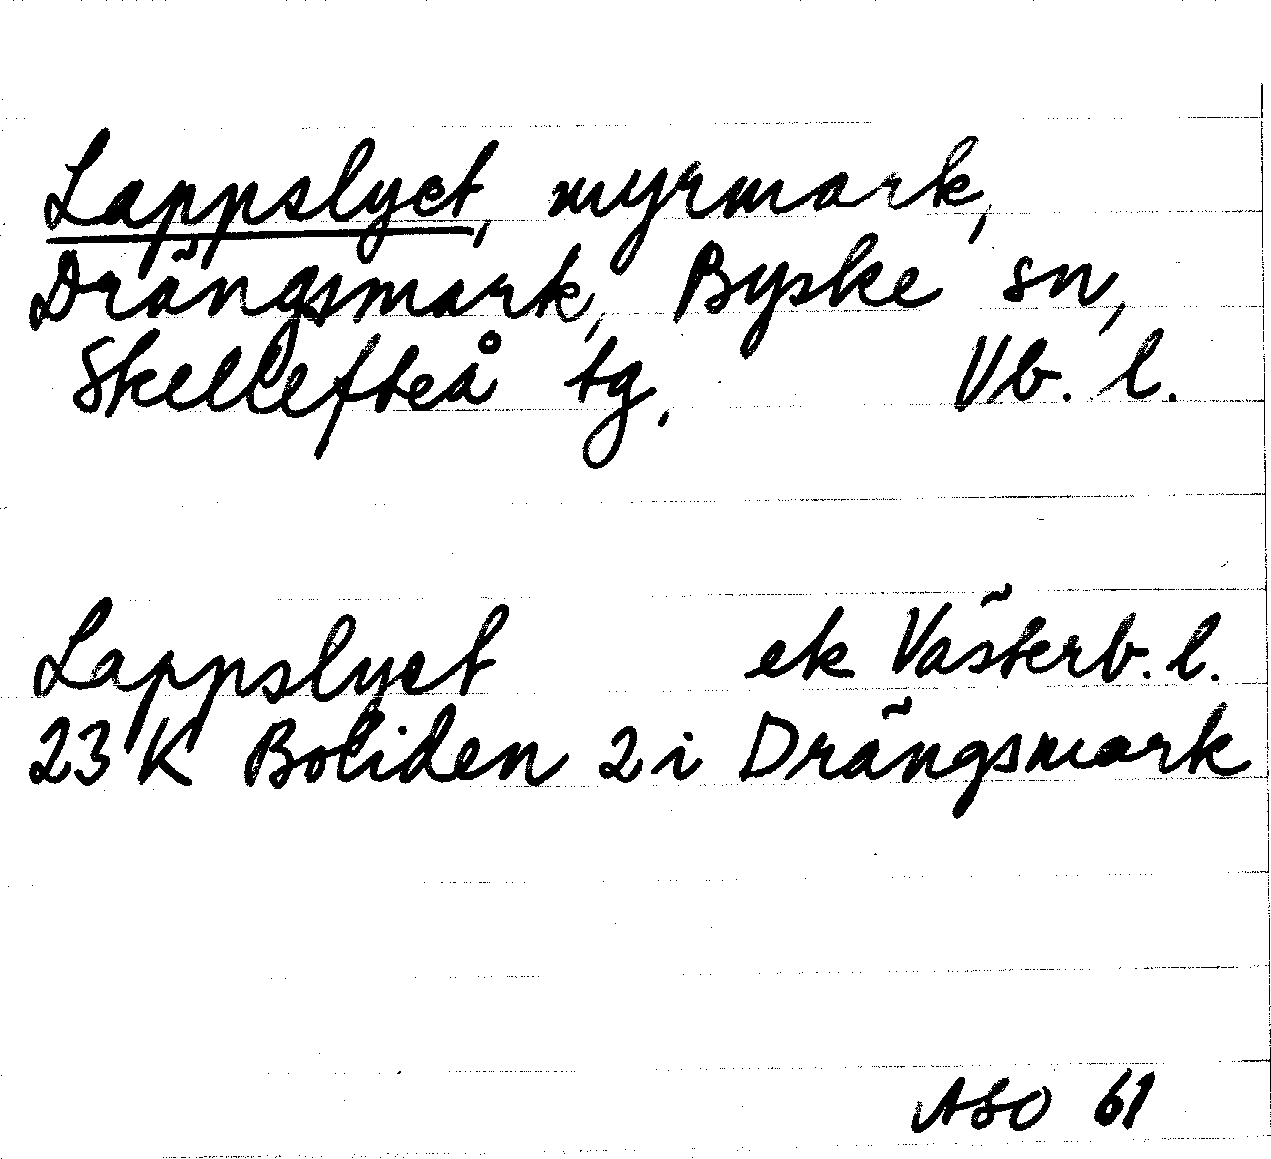 Lappslyet, myrmark,
Drängsmark, Byske sn,
Skellefteå tg. Vb. l.
Lappslyet ek Västerb. l.
23 K Boliden 2 i Drängsmark
ASO 61